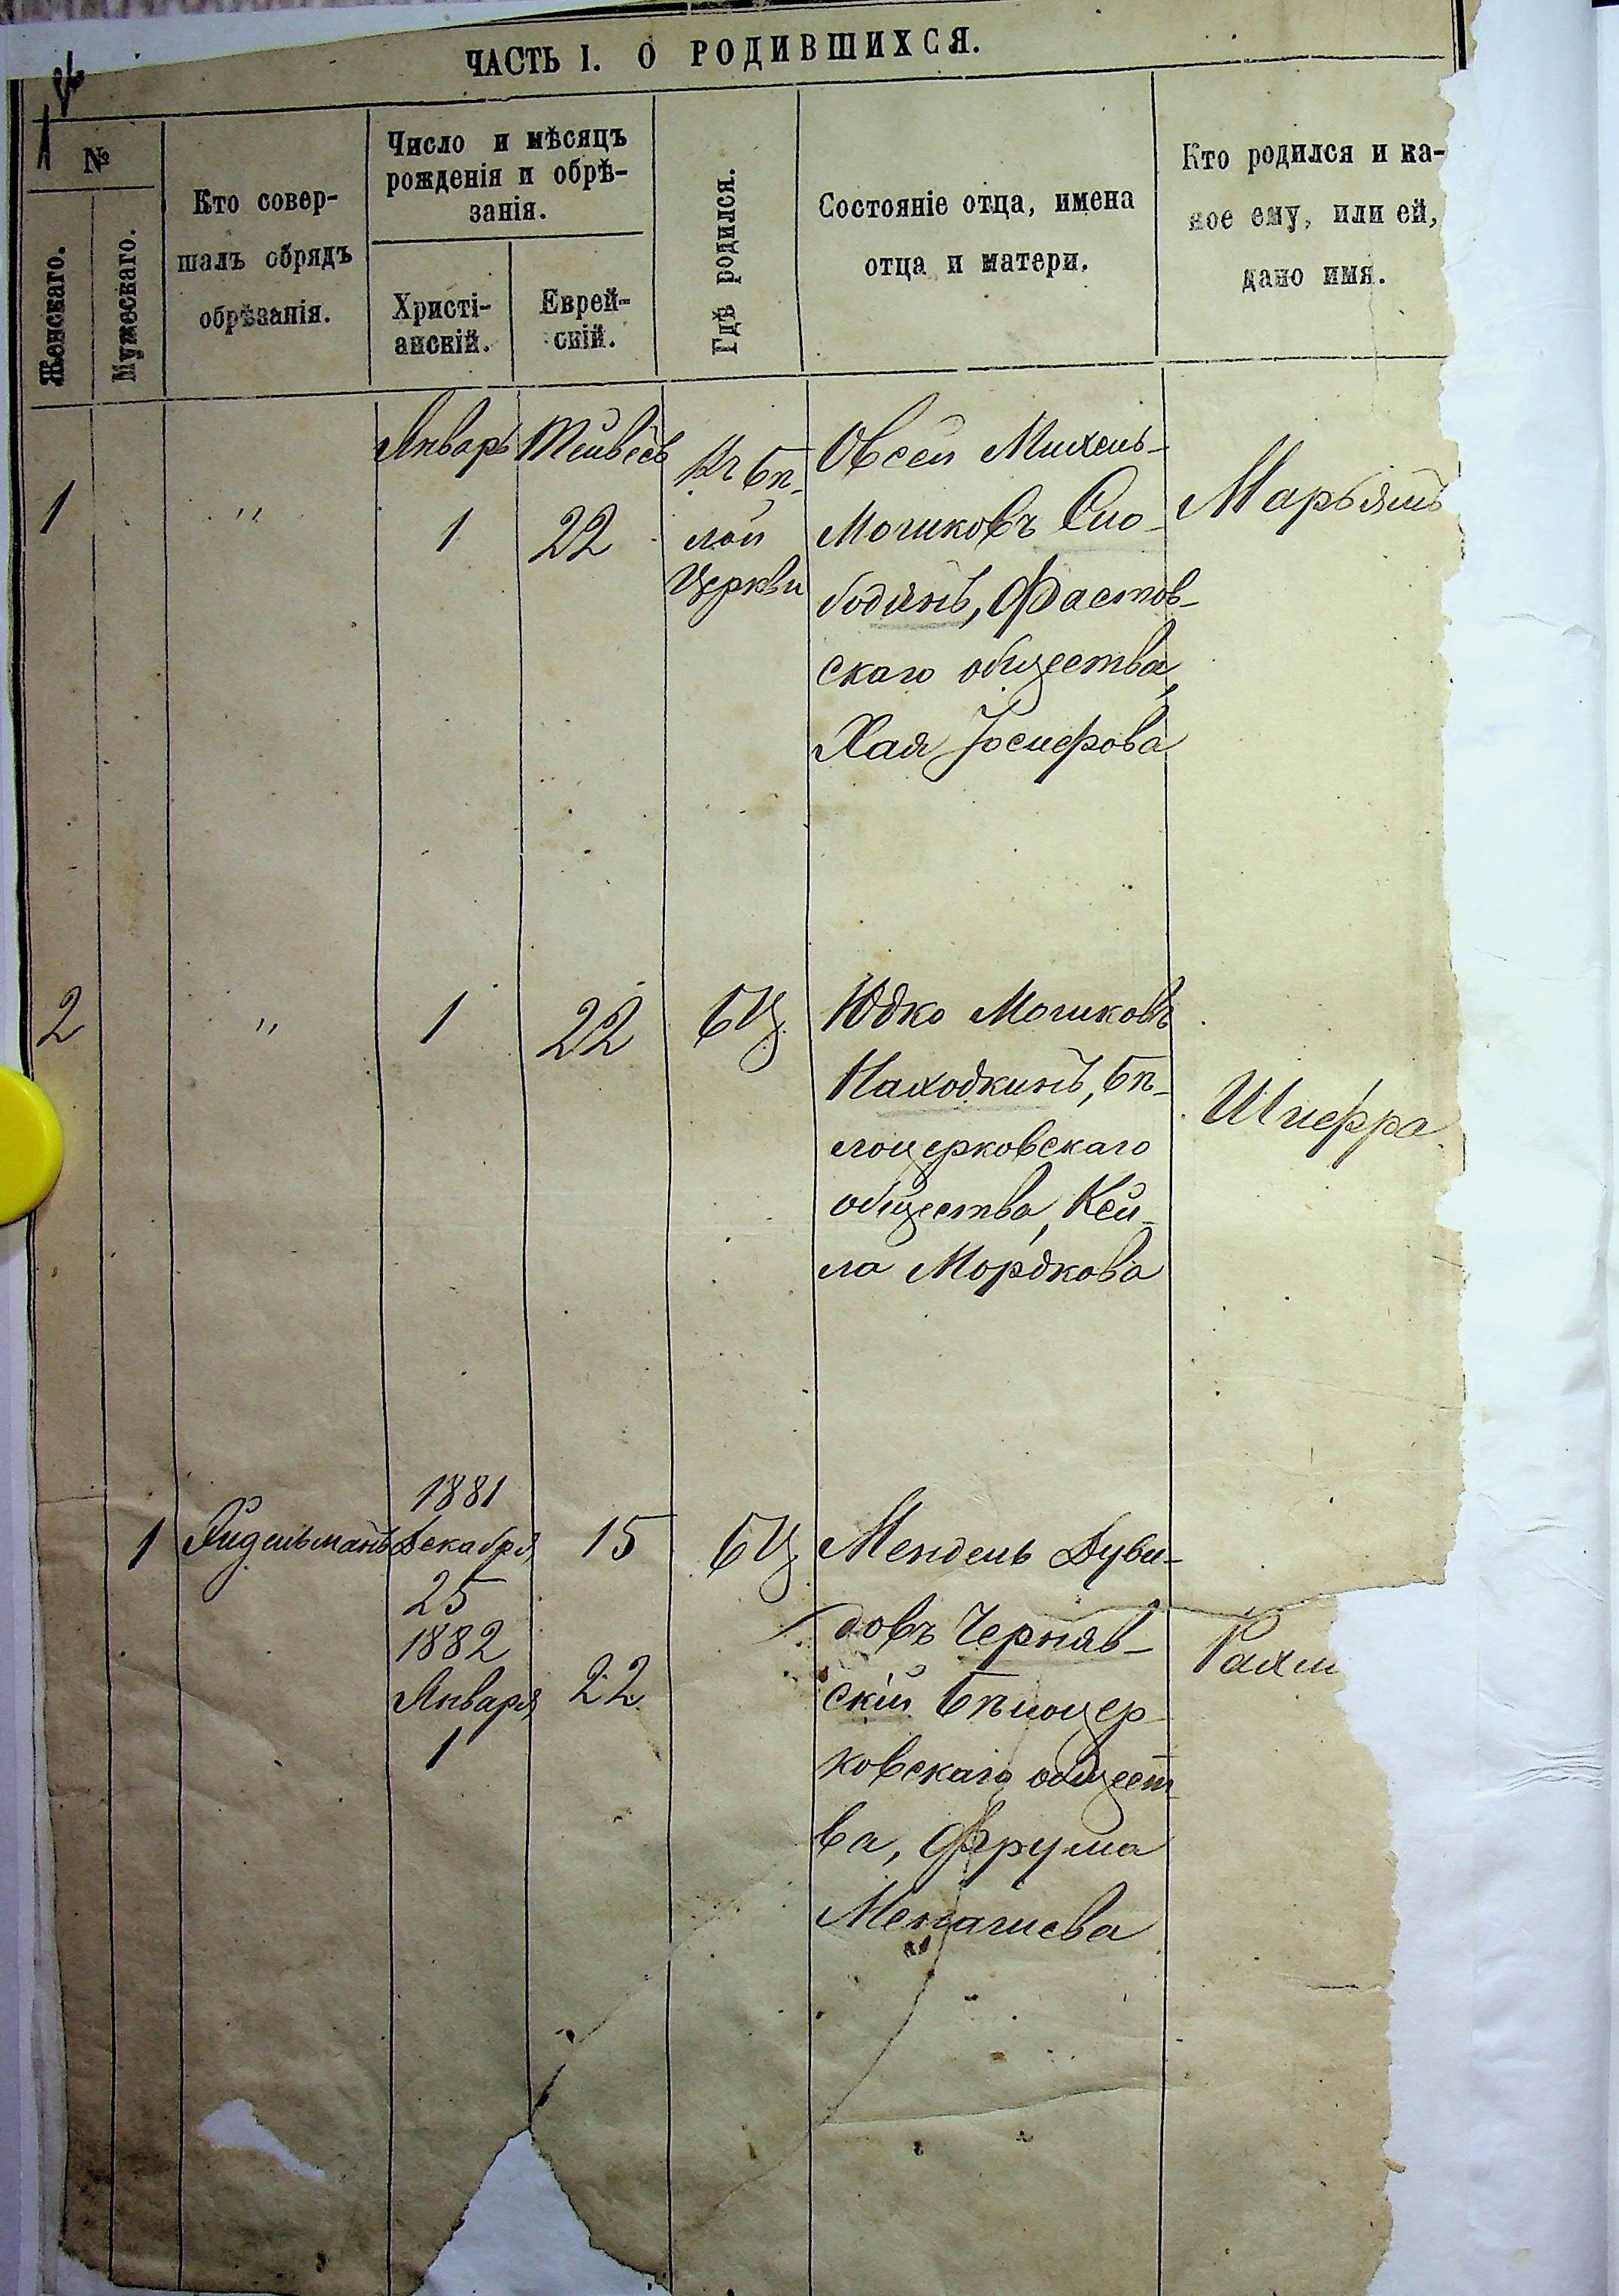 ЧАСТЬ I. О РОДИВШИХСЯ.
№
Женскаго.
Мужескаго.
Кто совер-
шалъ обрядъ
обрѣзанія.
Число и мѣсяцъ
рожденія и обрѣ-
занія.
Христі-
анскій.
Еврей-
скій.
Гдѣ родился.
Состояніе отца, имена
отца и матери.
Кто родился и ка-
кое ему, или ей,
дано имя.
1
"
Январь
1
Тейвесь
22
Въ Бѣ-
лой
Церкви
Овсей Михель-
Мошковъ Сло-
бодянъ, Фастов-
скаго общества,
Хая Іосиферова
Марьямъ
2
"
1
22
БЦ
Юдко Мошковъ
Находкинъ, Бѣ-
лоцерковскаго
общества, Кей-
ла Мордкова
Шиефра
1
1881
Декабря
25
1882
Января
1
15
22
БЦ
Мендель Дуви-
довъ Черняв-
скій Бѣлоцер-
ковскаго общест
ва, Фрума
Менашева